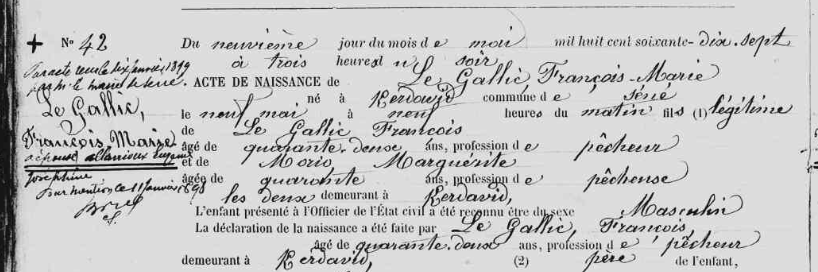 + N° 42
Du neuvième jour du mois de mai mil huit cent soixante-dix-sept
à trois heures du soir
Par acte reçu le dix janvier 1899
par le maire de
ACTE DE NAISSANCE de Le Gallic François-Marie
né à Kerdavid commune de Séné
le neuf mai à neuf heures du matin fils (1) légitime
de Le Gallic François
âgé de quarante-deux ans, profession de pêcheur
et de Morio Marguérite
âgée de quarante ans, profession de pêcheuse
les deux demeurant à Kerdavid,
L'enfant présenté à l'Officier de l'État civil a été reconnu être du sexe Masculin
La déclaration de la naissance a été faite par Le Gallic, François
âgé de quarante-deux ans, profession de pêcheur
demeurant à Kerdavid, (2) père de l'enfant,
Le Gallic,
François Marie
a épousé
Joséphine
pour mention le 11 janvier 1898